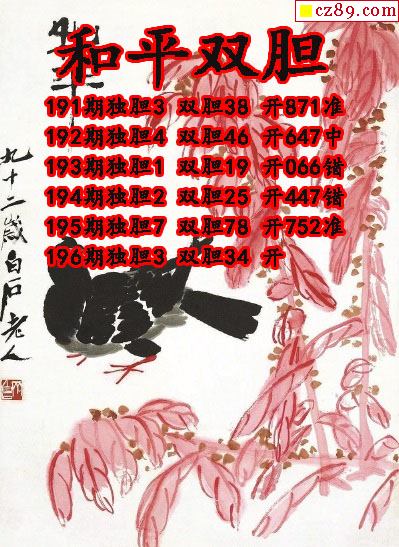 cz89.com
和平双胆
191期独胆3 双胆38 开871准
192期独胆4 双胆46 开647中
193期独胆1 双胆19 开066错
194期独胆2 双胆25 开447错
195期独胆7 双胆78 开752准
196期独胆3 双胆34 开
九十二岁白石老人